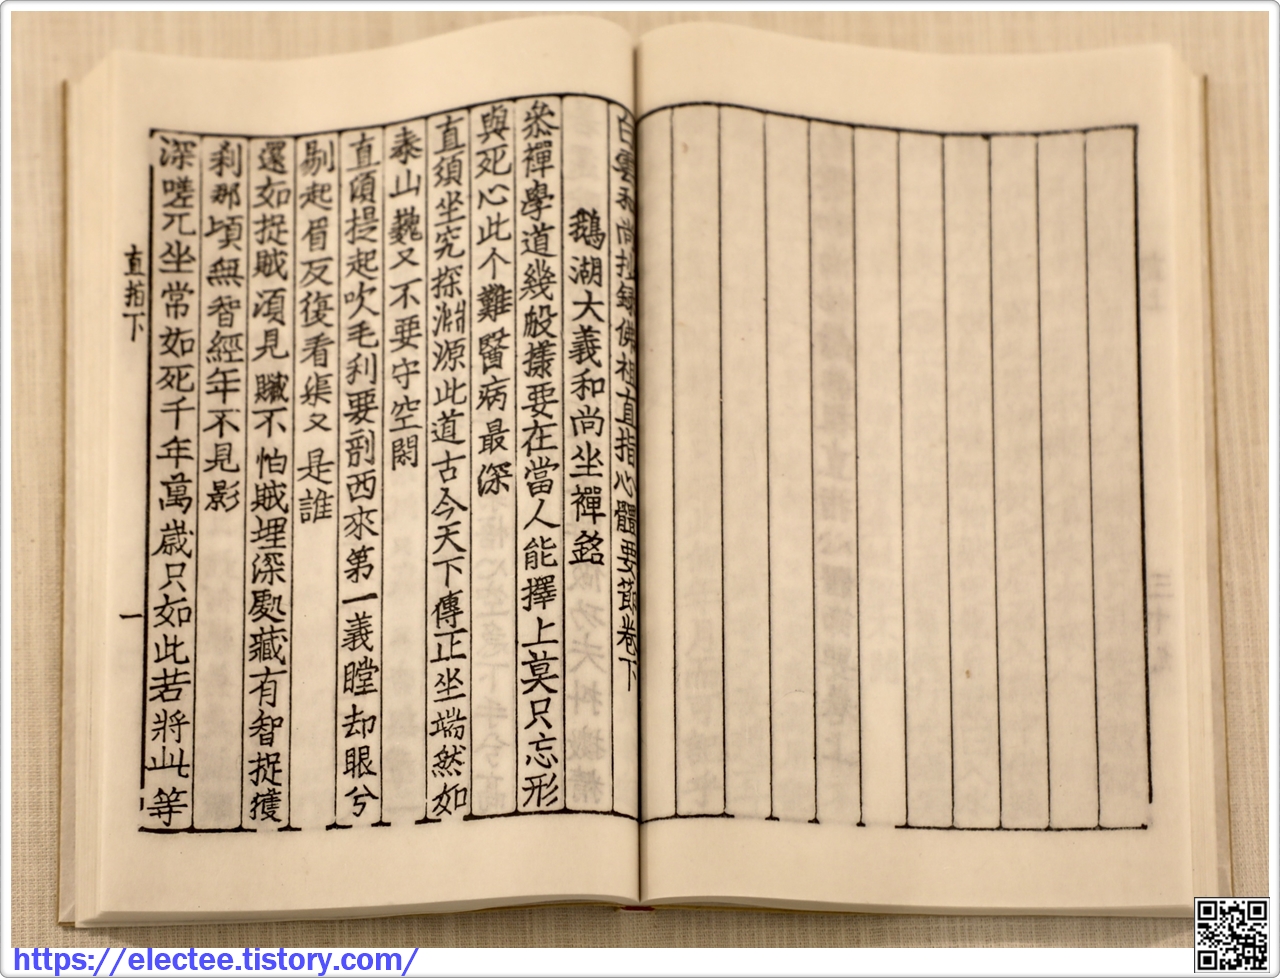 白雲和尚抄録佛祖直指心體要節卷下
鵝湖大義和尚坐禪銘
叅禪學道幾般樣要在當人能擇上莫只忘形
與死心此个難醫病最深
直須坐究探淵源此道古今天下傳正坐端然如
泰山巍又不要守空閑
直須提起吹毛利要剖西來第一義瞠却眼兮
剔起眉反復看渠又是誰
還如捉賊須見贜不怕賊埋深處藏有智捉獲
刹那頃無智經年不見影
深嗟兀坐常如死千年萬歲只如此若將此等
直指下
一
https://electee.tistory.com/